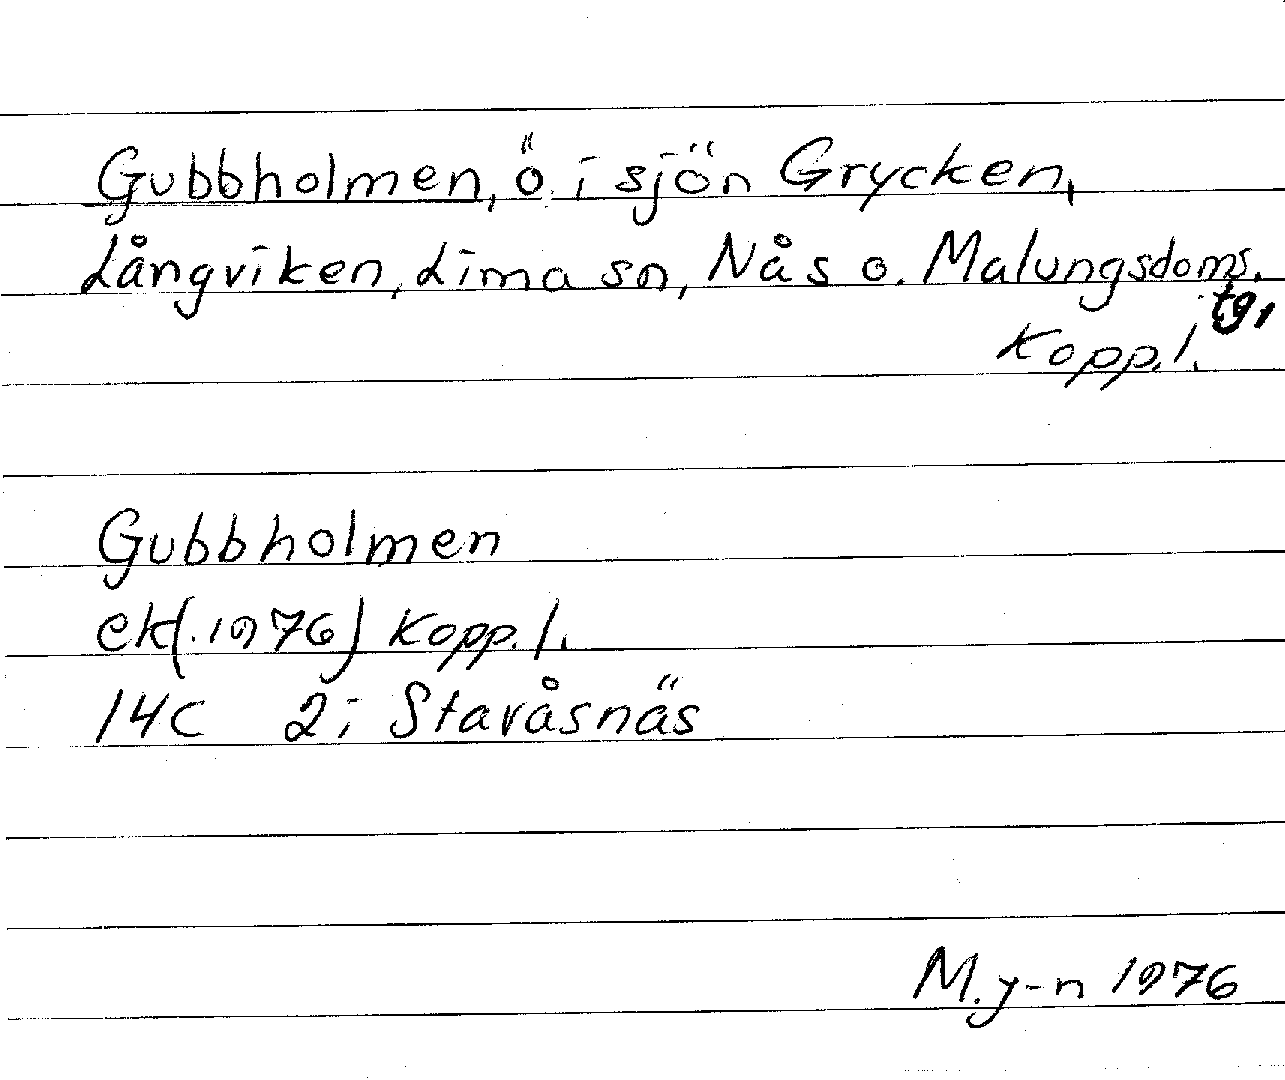 Gubbholmen, ö i sjön Grycken,
Långviken, Lima sn, Nås o. Malungsdoms.
tg,
Kopp.l.
Gubbholmen
ek(.1976) Kopp.l.
14C 2i Stavåsnäs
M.y-n 1976